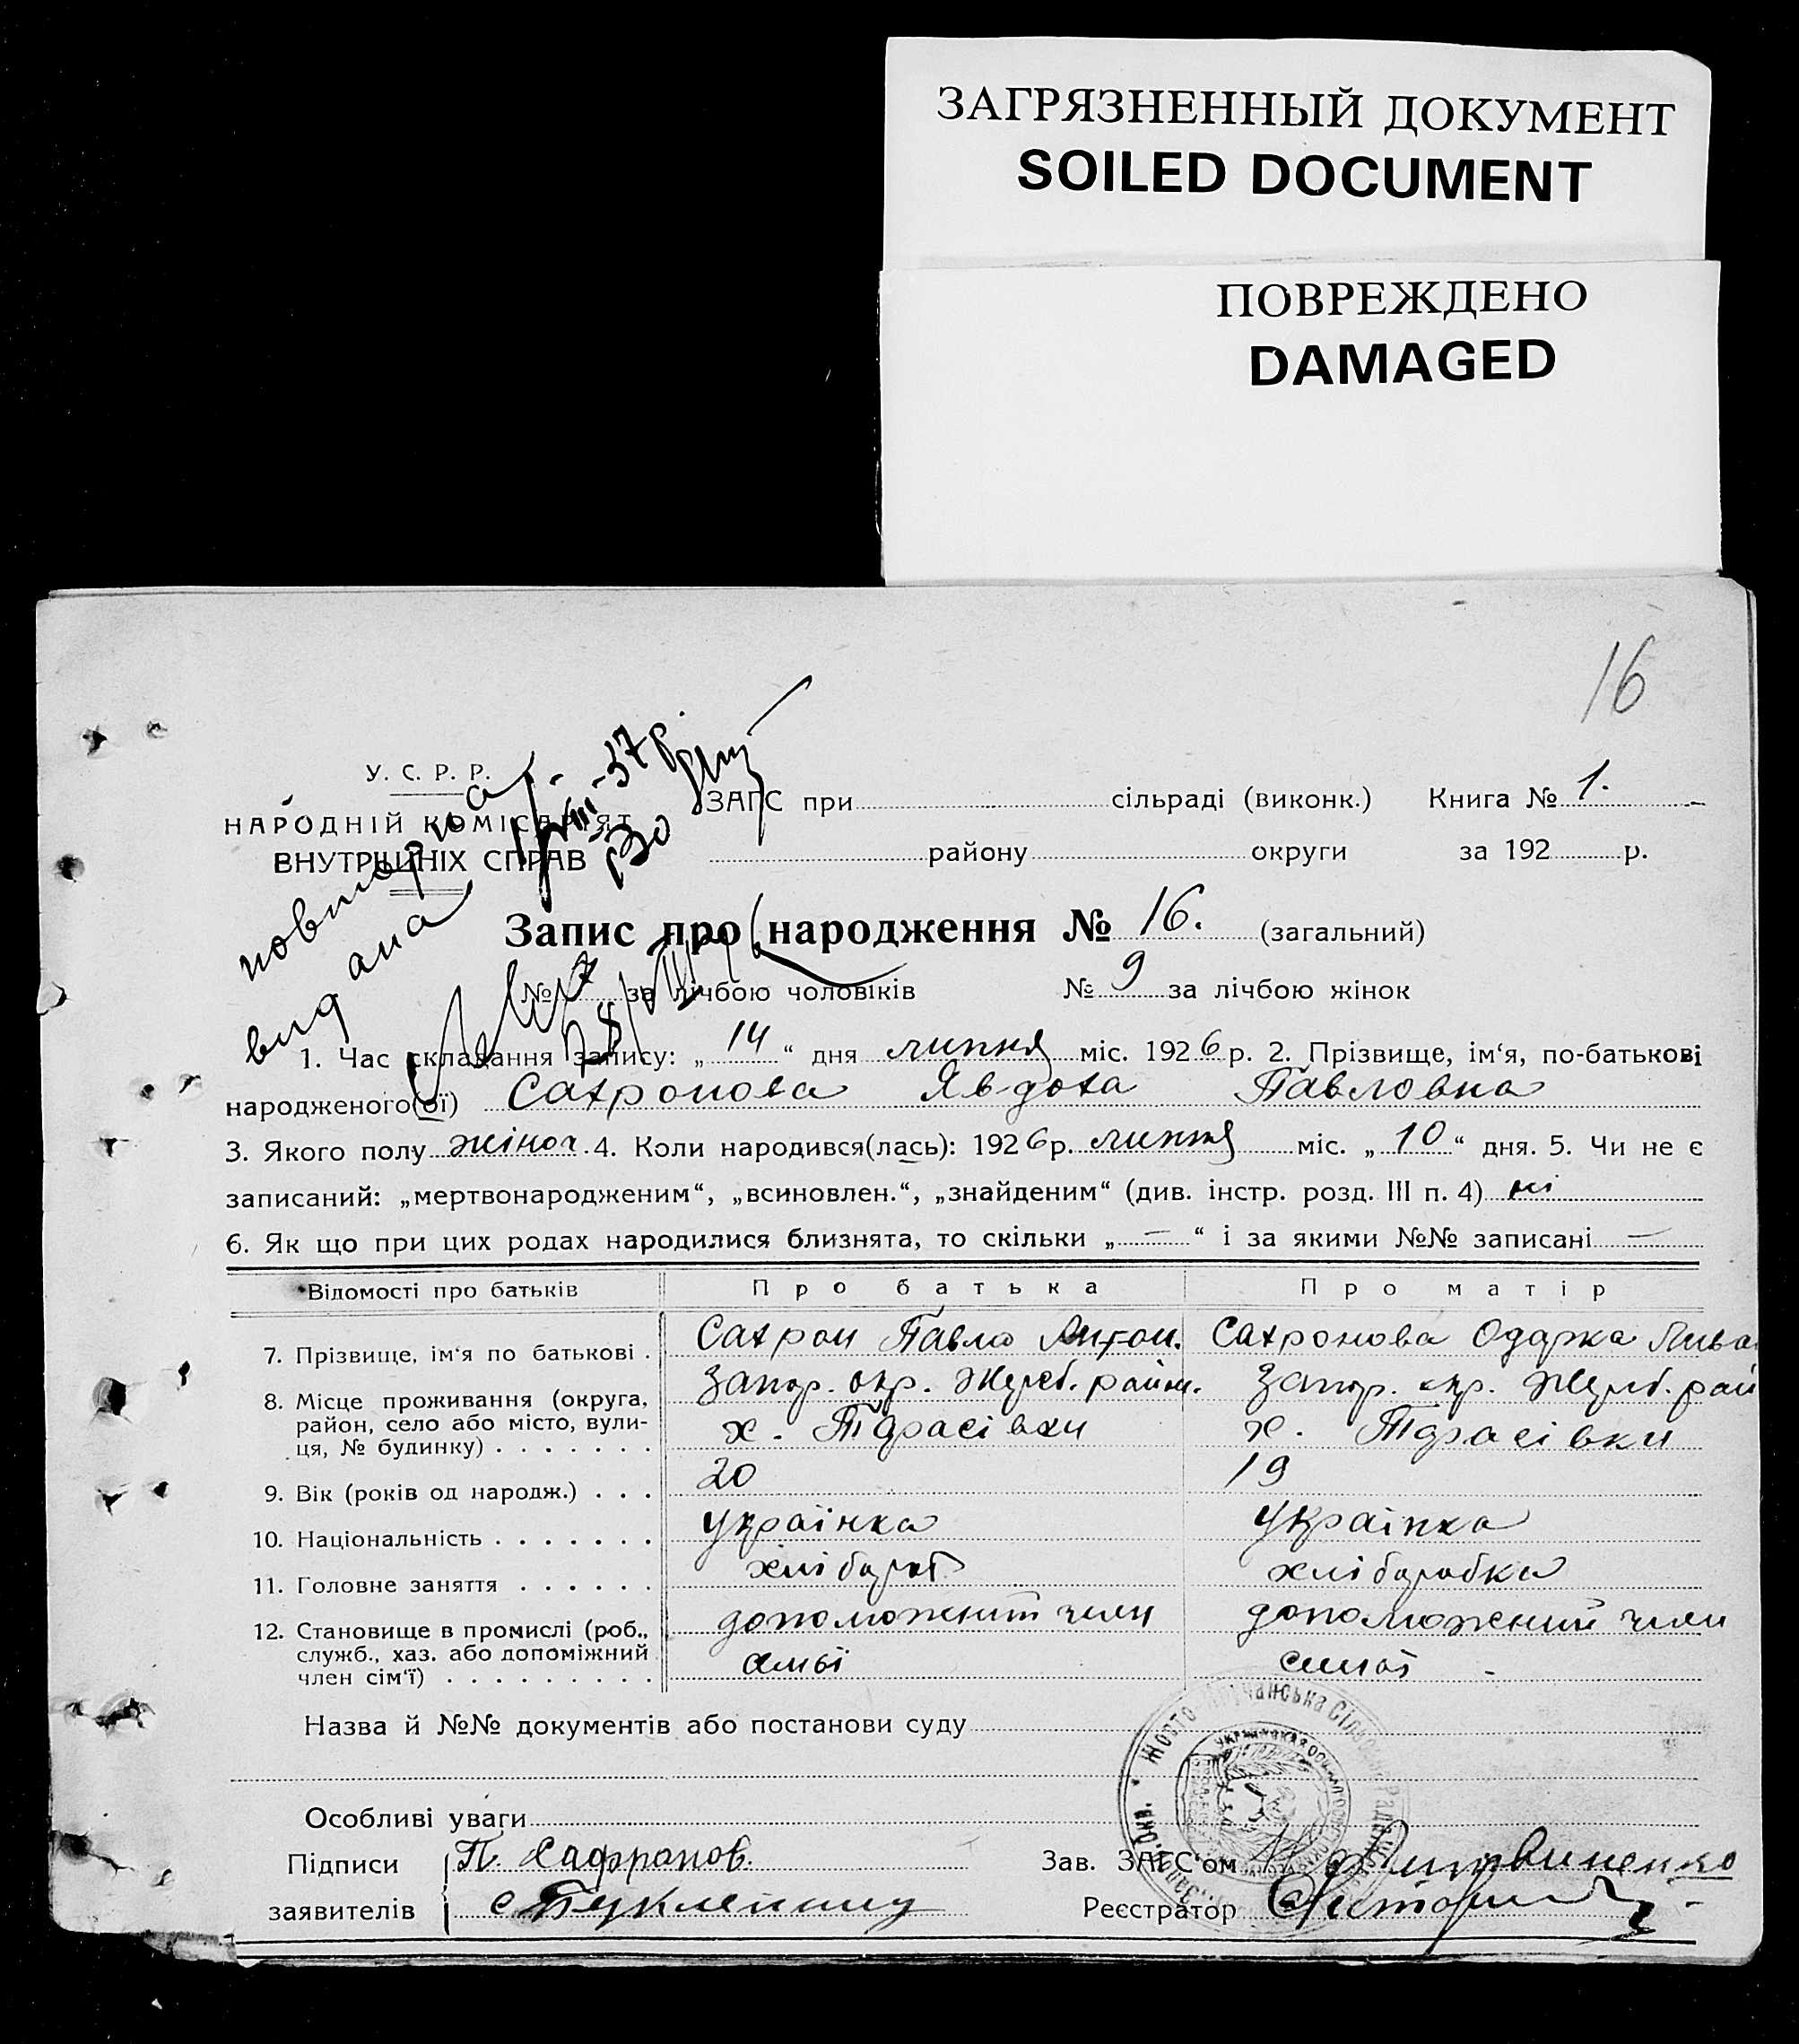 ЗАГРЯЗНЕННЫЙ ДОКУМЕНТ
SOILED DOCUMENT
ПОВРЕЖДЕНО
DAMAGED
16
У. С. Р. Р.
НАРОДНІЙ КОМІСАРІЯТ
ВНУТРІШНІХ СПРАВ
повторна
видана
ЗАГС при сільраді (виконк.) Книга № 1.
району округи за 192 р.
Запис про народження № 16. (загальний)
№ 7 за лічбою чоловіків № 9 за лічбою жінок
1. Час складання запису: „ 14 “ дня липня міс. 1926 р. 2. Прізвище, ім‘я, по-батькові
народженого(ої) Сахронова Явдоха Павловна
3. Якого полу жіноч. 4. Коли народився(лась): 1926 р. липня міс. „ 10 “ дня. 5. Чи не є
записаний: „мертвонародженим“, „всиновлен.“, „знайденим“ (див. інстр. розд. III п. 4) ні
6. Як що при цих родах народилися близнята, то скільки „ — “ і за якими №№ записані —
Відомості про батьків Про батька Про матір
7. Прізвище, ім‘я по батькові . Сахрон Павло Антон. Сахронова Одарка
8. Місце проживання (округа, район, село або місто, вулиця, № будинку) Запор. окр. Жереб. район. Запор. окр. Жереб. рай
х. Тарасівки х. Тарасівки
9. Вік (років од народж.) . . . 20 19
10. Національність . . . . . . . українка українка
11. Головне заняття . . . . . . хлібороб хліборобка
12. Становище в промислі (роб., служб., хаз. або допоміжний член сім‘ї) . . . . . . . . . допоможений член допоможений член
семьї
Назва й №№ документів або постанови суду
Особливі уваги
Підписи П. Сафронов. Зав. ЗАГС‘ом Литвиненко
заявителів Реєстратор